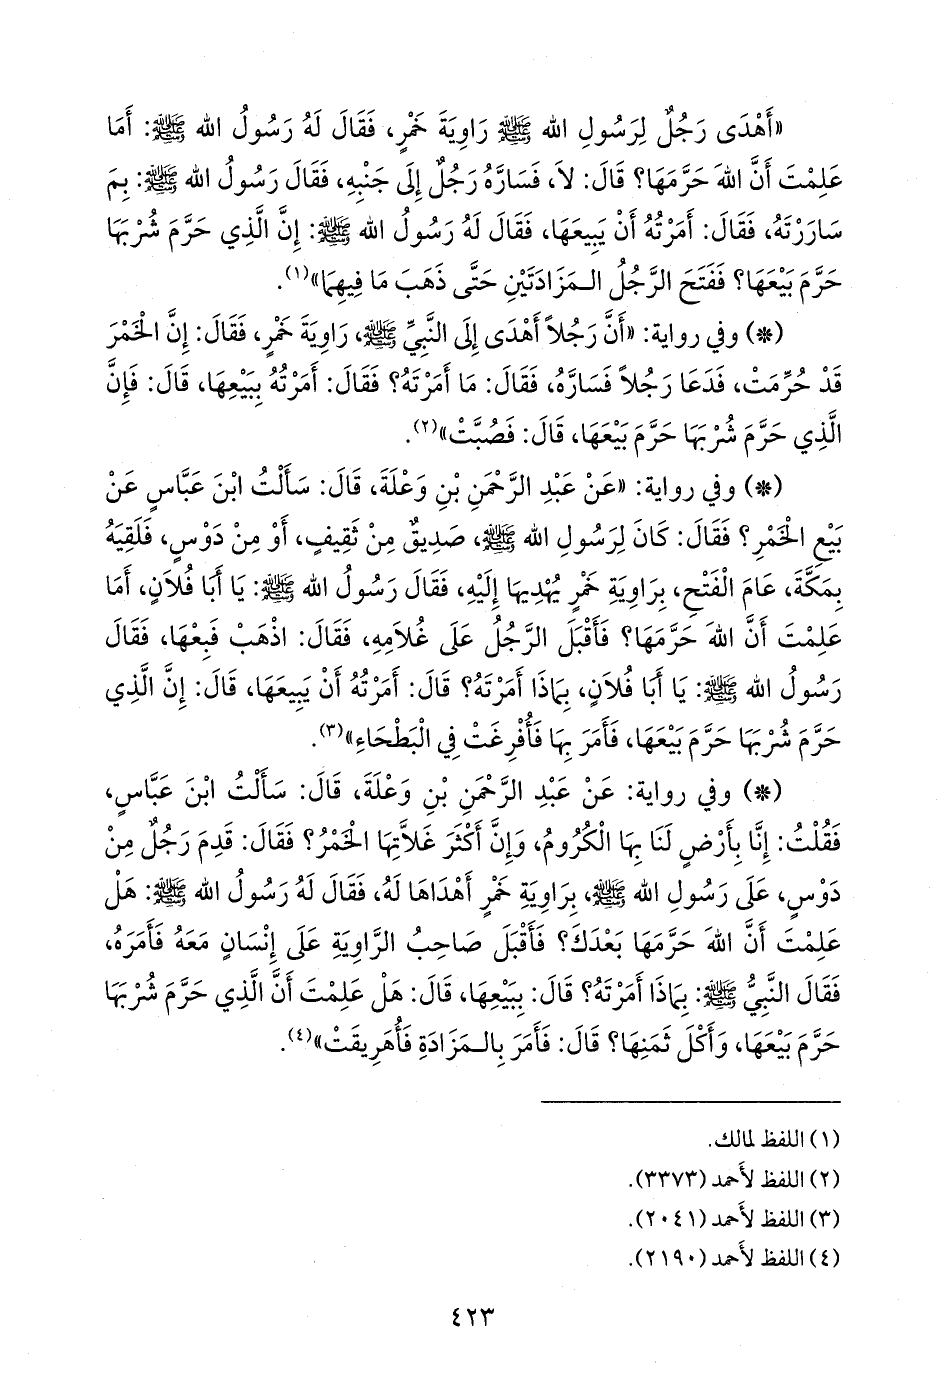 «أَهْدَى رَجُلٌ لِرَسُولِ الله ﷺ رَاوِيَةَ خَمْرٍ، فَقَالَ لَهُ رَسُولُ الله ﷺ: أَمَا
عَلِمْتَ أَنَّ اللهَ حَرَّمَهَا؟ قَالَ: لاَ، فَسَارَّهُ رَجُلٌ إِلَى جَنْبِهِ، فَقَالَ رَسُولُ الله ﷺ: بِمَ
سَارَرْتَهُ، فَقَالَ: أَمَرْتُهُ أَنْ يَبِيعَهَا، فَقَالَ لَهُ رَسُولُ الله ﷺ: إِنَّ الَّذِي حَرَّمَ شُرْبَهَا
حَرَّمَ بَيْعَهَا؟ فَفَتَحَ الرَّجُلُ الـمَزَادَتَيْنِ حَتَّى ذَهَبَ مَا فِيهِمَا»(١).
(*) وفي رواية: «أَنَّ رَجُلاً أَهْدَى إِلَى النَّبِيِّ ﷺ، رَاوِيَةَ خَمْرٍ، فَقَالَ: إِنَّ الْخَمْرَ
قَدْ حُرِّمَتْ، فَدَعَا رَجُلاً فَسَارَّهُ، فَقَالَ: مَا أَمَرْتَهُ؟ فَقَالَ: أَمَرْتُهُ بِبَيْعِهَا، قَالَ: فَإِنَّ
الَّذِي حَرَّمَ شُرْبَهَا حَرَّمَ بَيْعَهَا، قَالَ: فَصُبَّتْ»(٢).
(*) وفي رواية: «عَنْ عَبْدِ الرَّحْمَنِ بْنِ وَعْلَةَ، قَالَ: سَأَلْتُ ابْنَ عَبَّاسٍ عَنْ
بَيْعِ الْخَمْرِ؟ فَقَالَ: كَانَ لِرَسُولِ الله ﷺ، صَدِيقٌ مِنْ ثَقِيفٍ، أَوْ مِنْ دَوْسٍ، فَلَقِيَهُ
بِمَكَّةَ، عَامَ الْفَتْحِ، بِرَاوِيَةِ خَمْرٍ يُهْدِيهَا إِلَيْهِ، فَقَالَ رَسُولُ الله ﷺ: يَا أَبَا فُلاَنٍ، أَمَا
عَلِمْتَ أَنَّ اللهَ حَرَّمَهَا؟ فَأَقْبَلَ الرَّجُلُ عَلَى غُلاَمِهِ، فَقَالَ: اذْهَبْ فَبِعْهَا، فَقَالَ
رَسُولُ الله ﷺ: يَا أَبَا فُلاَنٍ، بِمَاذَا أَمَرْتَهُ؟ قَالَ: أَمَرْتُهُ أَنْ يَبِيعَهَا، قَالَ: إِنَّ الَّذِي
حَرَّمَ شُرْبَهَا حَرَّمَ بَيْعَهَا، فَأَمَرَ بِهَا فَأُفْرِغَتْ فِي الْبَطْحَاءِ»(٣).
(*) وفي رواية: عَنْ عَبْدِ الرَّحْمَنِ بْنِ وَعْلَةَ، قَالَ: سَأَلْتُ ابْنَ عَبَّاسٍ،
فَقُلْتُ: إِنَّا بِأَرْضٍ لَنَا بِهَا الْكُرُومُ، وَإِنَّ أَكْثَرَ غَلاَّتِهَا الْخَمْرُ؟ فَقَالَ: قَدِمَ رَجُلٌ مِنْ
دَوْسٍ، عَلَى رَسُولِ الله ﷺ، بِرَاوِيَةِ خَمْرٍ أَهْدَاهَا لَهُ، فَقَالَ لَهُ رَسُولُ الله ﷺ: هَلْ
عَلِمْتَ أَنَّ اللهَ حَرَّمَهَا بَعْدَكَ؟ فَأَقْبَلَ صَاحِبُ الرَّاوِيَةِ عَلَى إِنْسَانٍ مَعَهُ فَأَمَرَهُ،
فَقَالَ النَّبِيُّ ﷺ: بِمَاذَا أَمَرْتَهُ؟ قَالَ: بِبَيْعِهَا، قَالَ: هَلْ عَلِمْتَ أَنَّ الَّذِي حَرَّمَ شُرْبَهَا
حَرَّمَ بَيْعَهَا، وَأَكْلَ ثَمَنِهَا؟ قَالَ: فَأَمَرَ بِالـمَزَادَةِ فَأُهَرِيقَتْ»(٤).
(١) اللفظ لمالك.
(٢) اللفظ لأحمد (٣٣٧٣).
(٣) اللفظ لأحمد (٢٠٤١).
(٤) اللفظ لأحمد (٢١٩٠).
٤٢٣